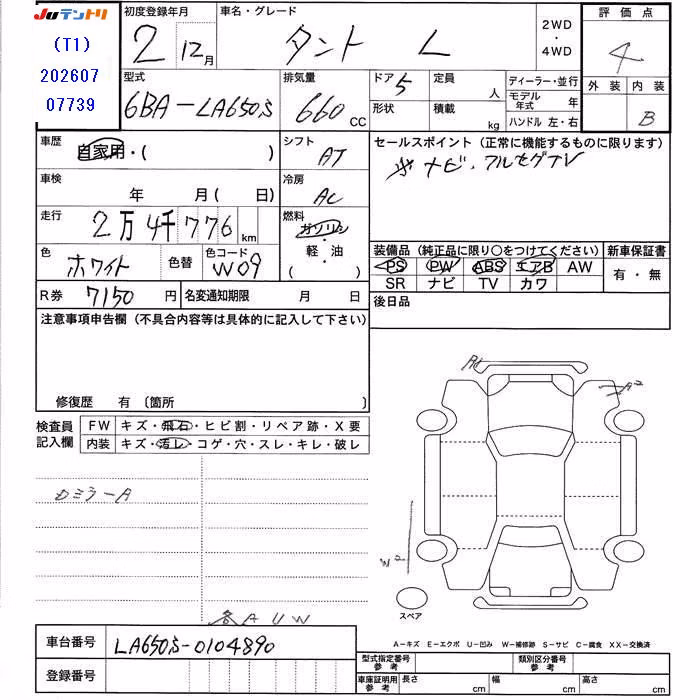 JUテントリ
(T1)
202607
07739
初度登録年月
2 12月
車名・グレード
タント L
2WD
・
4WD
評価点
4
外装 内装
B
型式
6BA-LA650S
排気量
660 CC
ドア 5
形状
定員 人
積載 kg
ディーラー・並行
モデル年式 年
ハンドル 左・右
車歴
自家用・( )
シフト
AT
セールスポイント (正常に機能するものに限ります)
※ ナビ、フルセグTV
車検 年 月( 日)
冷房
AC
走行
2万4千776 km
燃料
ガソリン
・
軽・油
( )
色
ホワイト
色替
色コード
W09
装備品 (純正品に限り○をつけてください)
新車保証書
PS PW ABS エアB AW
SR ナビ TV カワ
有・無
R券 7150 円
名変通知期限 月 日
後日品
注意事項申告欄 (不具合内容等は具体的に記入して下さい)
修復歴 有 〔箇所 〕
検査員
記入欄
FW キズ・飛石・ヒビ割・リペア跡・X要
内装 キズ・汚レ・コゲ・穴・スレ・キレ・破レ
ロミラーA
各AUW
A1
A2
W2
スペア
A-キズ E-エクボ U-凹み W-補修跡 S-サビ C-腐食 XX-交換済
車台番号 LA650S-0104890
登録番号
型式指定番号
参考
類別区分番号
参考
車庫証明用
参考
長さ cm 幅 cm 高さ cm